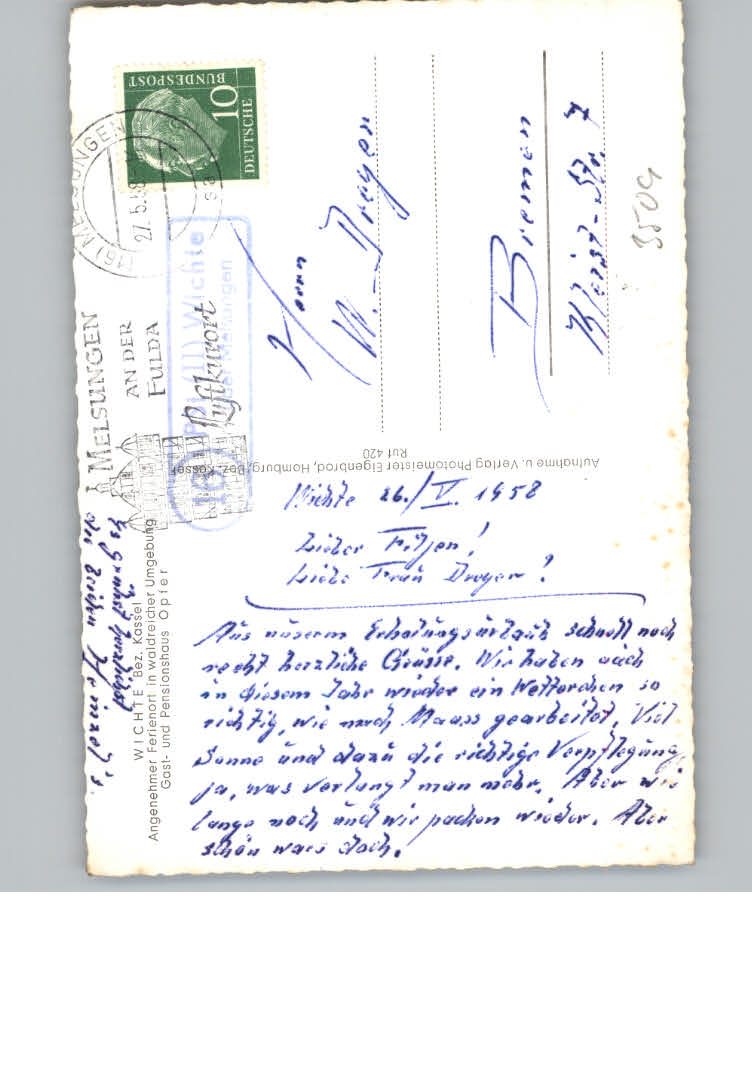 DEUTSCHE
BUNDESPOST
10
(16) MELSUNGEN
27.5.58
MELSUNGEN
AN DER
FULDA
Luftkurort
(16) Wichte
über Melsungen
Herrn
W. Dreyer
Bremen
Kleist-Str. 7
3509
Aufnahme u. Verlag Photomeister Eigenbrod, Homburg, Bez. Kassel
Ruf 420
WICHTE Bez. Kassel
Angenehmer Ferienort in waldreicher Umgebung
Gast- und Pensionshaus Opfer
Wichte 26./V. 1958
Lieber Fitjen!
Liebe Frau Dreyer!
Aus unserm Erholungsurlaub schnell noch
recht herzliche Grüsse. Wir haben auch
in diesem Jahr wieder ein Wetterchen so
richtig, wie nach Maass gearbeitet. Viel
Sonne und dazu die richtige Verpflegung,
ja, was verlangt man mehr. Aber wie
lange noch und wir packen wieder. Aber
schön wars doch.
Es grüsst herzlichst
die beiden